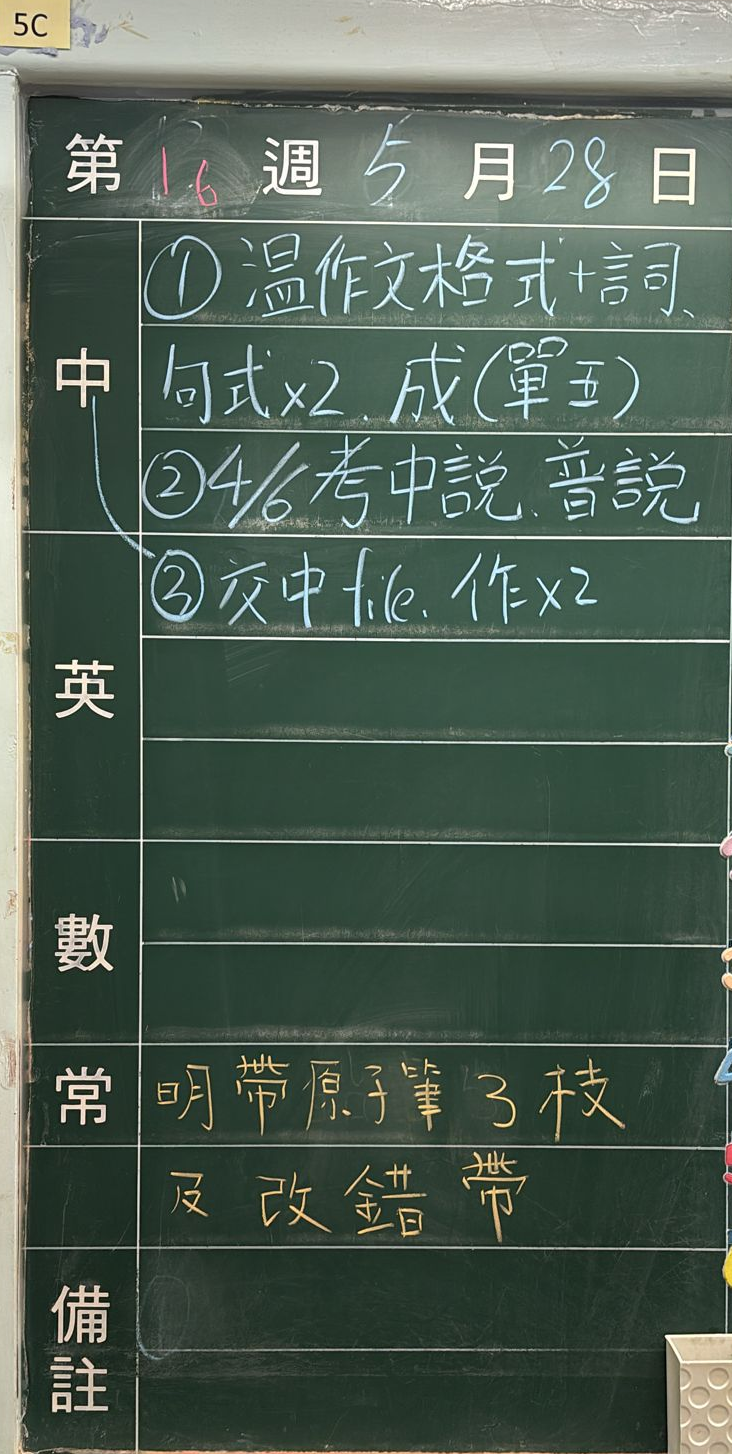 5C
第16週5月28日
中
①温作文格式+詞、
句式x2、成(單五)
②4/6考中說、普說
③交中file、作x2
英
數
常
明帶原子筆3枝
及改錯帶
備註